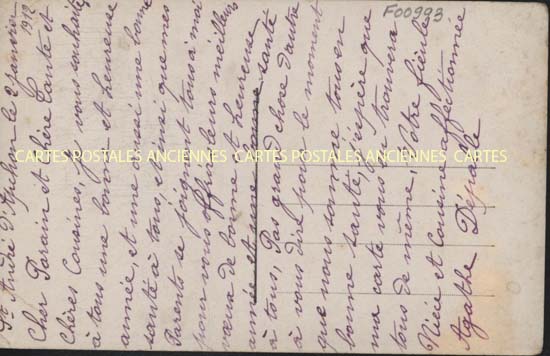 F00993
St André d'Apchon le 2 janvier
19
Cher Parain et chère Tante et
Chères Cousines, je vous souhaite
à tous une bonne et heureuse
année, et une aussi une bonne
santé à tous, et ainsi que mes
Parents se joignent tous à moi
pour vous offrir leurs meilleurs
vœux de bonne et heureuse
année et une bonne santé
à tous, Pas grand chose d'autre
à vous dire pour le moment
que nous somme tous en
bonne santé, j'espère que
ma carte vous y trouvera
tous de même, Votre
Nièce et Cousine affectionnée
Agathe Dépalle
CARTES POSTALES ANCIENNES CARTES POSTALES ANCIENNES CARTES POSTALES ANCIENNES